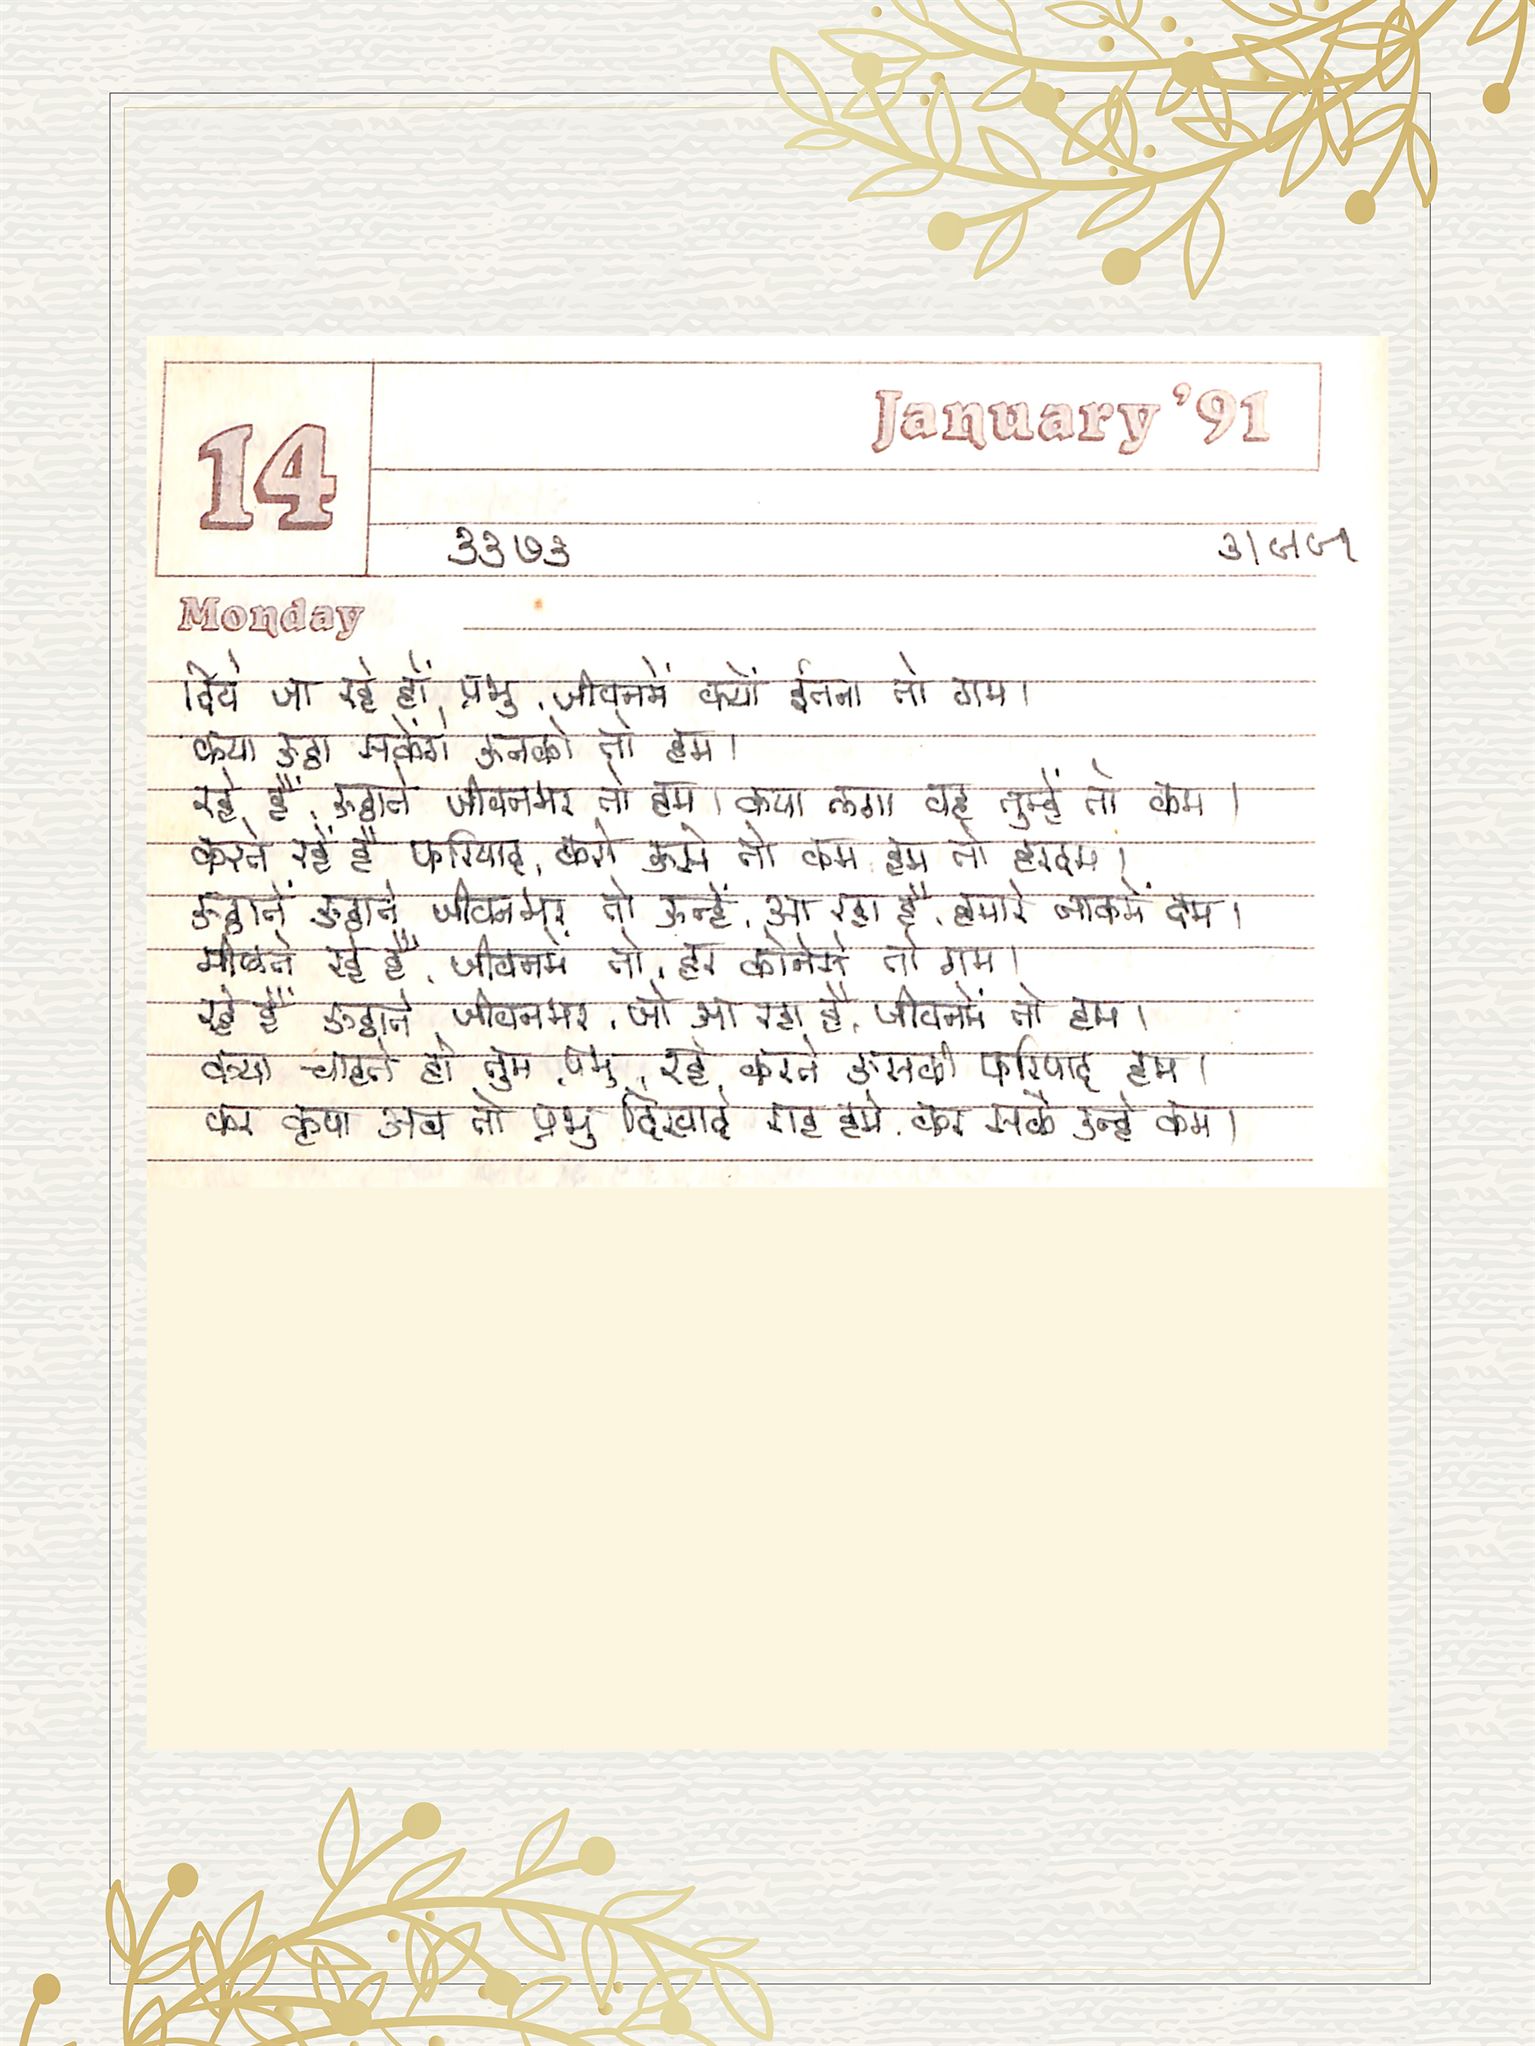 14
January '91
3373
Monday
दिये जा रहे हों, प्रभु, जीवनमें क्यों ईतना तो गम।
क्या ऊठा सकेंगे ऊनको तो हम।
रहे हैं, ऊठाते जीवनभर तो हम। क्या लगा वह तुम्हें तो कम।
करते रहें है फरियाद, करो ऊसे तो कम हम तो हरदम।
ऊठातें ऊठाते जीवनभर तो ऊन्हें, आ रहा है, हमारे नाकमें दम।
मीलते रहे हैं, जीवनमें तो, हर कोनेसे तो गम।
रहे हैं ऊठाते जीवनभर, जो आ रहा है, जीवनमें तो हम।
क्या चाहते हो तुम प्रभु, रहे, करते ऊसकी फरियाद हम।
कर कृपा अब तो प्रभु दिखादे राह हमे, कर सकै उन्हे कम।